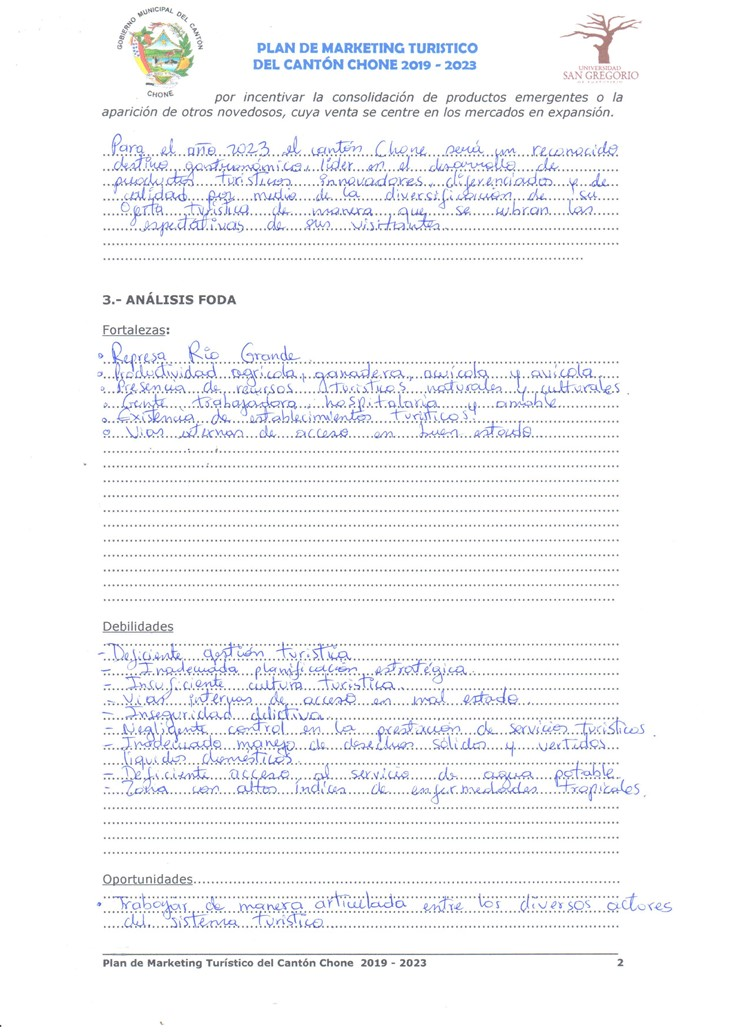 GOBIERNO MUNICIPAL DEL CANTÓN
CHONE
PLAN DE MARKETING TURISTICO
DEL CANTÓN CHONE 2019 - 2023
UNIVERSIDAD
SAN GREGORIO
por incentivar la consolidación de productos emergentes o la
aparición de otros novedosos, cuya venta se centre en los mercados en expansión.
Para el año 2023 el cantón Chone será un reconocido
destino gastronómico, líder en el desarrollo de
productos turísticos innovadores, diferenciados y de
calidad por medio de la diversificación de su
Oferta turística de manera que se cubran las
espectativas de sus visitantes
3.- ANÁLISIS FODA
Fortalezas:
• Represa Río Grande
• Productividad agrícola, ganadera, acuícola y avícola
• Presencia de recursos turísticos naturales y culturales.
• Gente trabajadora, hospitalaria y amable
• Existencia de establecimientos turísticos
• Vías externas de acceso en buen estado
Debilidades
- Deficiente gestión turística
- Inadecuada planificación estratégica
- Insuficiente cultura turística
- Vías internas de acceso en mal estado
- Inseguridad delictiva
- Negligente control en la prestación de servicios turísticos.
- Inadecuado manejo de desechos sólidos y vertidos
líquidos domésticos
- Deficiente acceso al servicio de agua potable
- Zona con altos índices de enfermedades tropicales.
Oportunidades
• Trabajar de manera articulada entre los diversos actores
del sistema turístico
Plan de Marketing Turístico del Cantón Chone 2019 - 2023 2